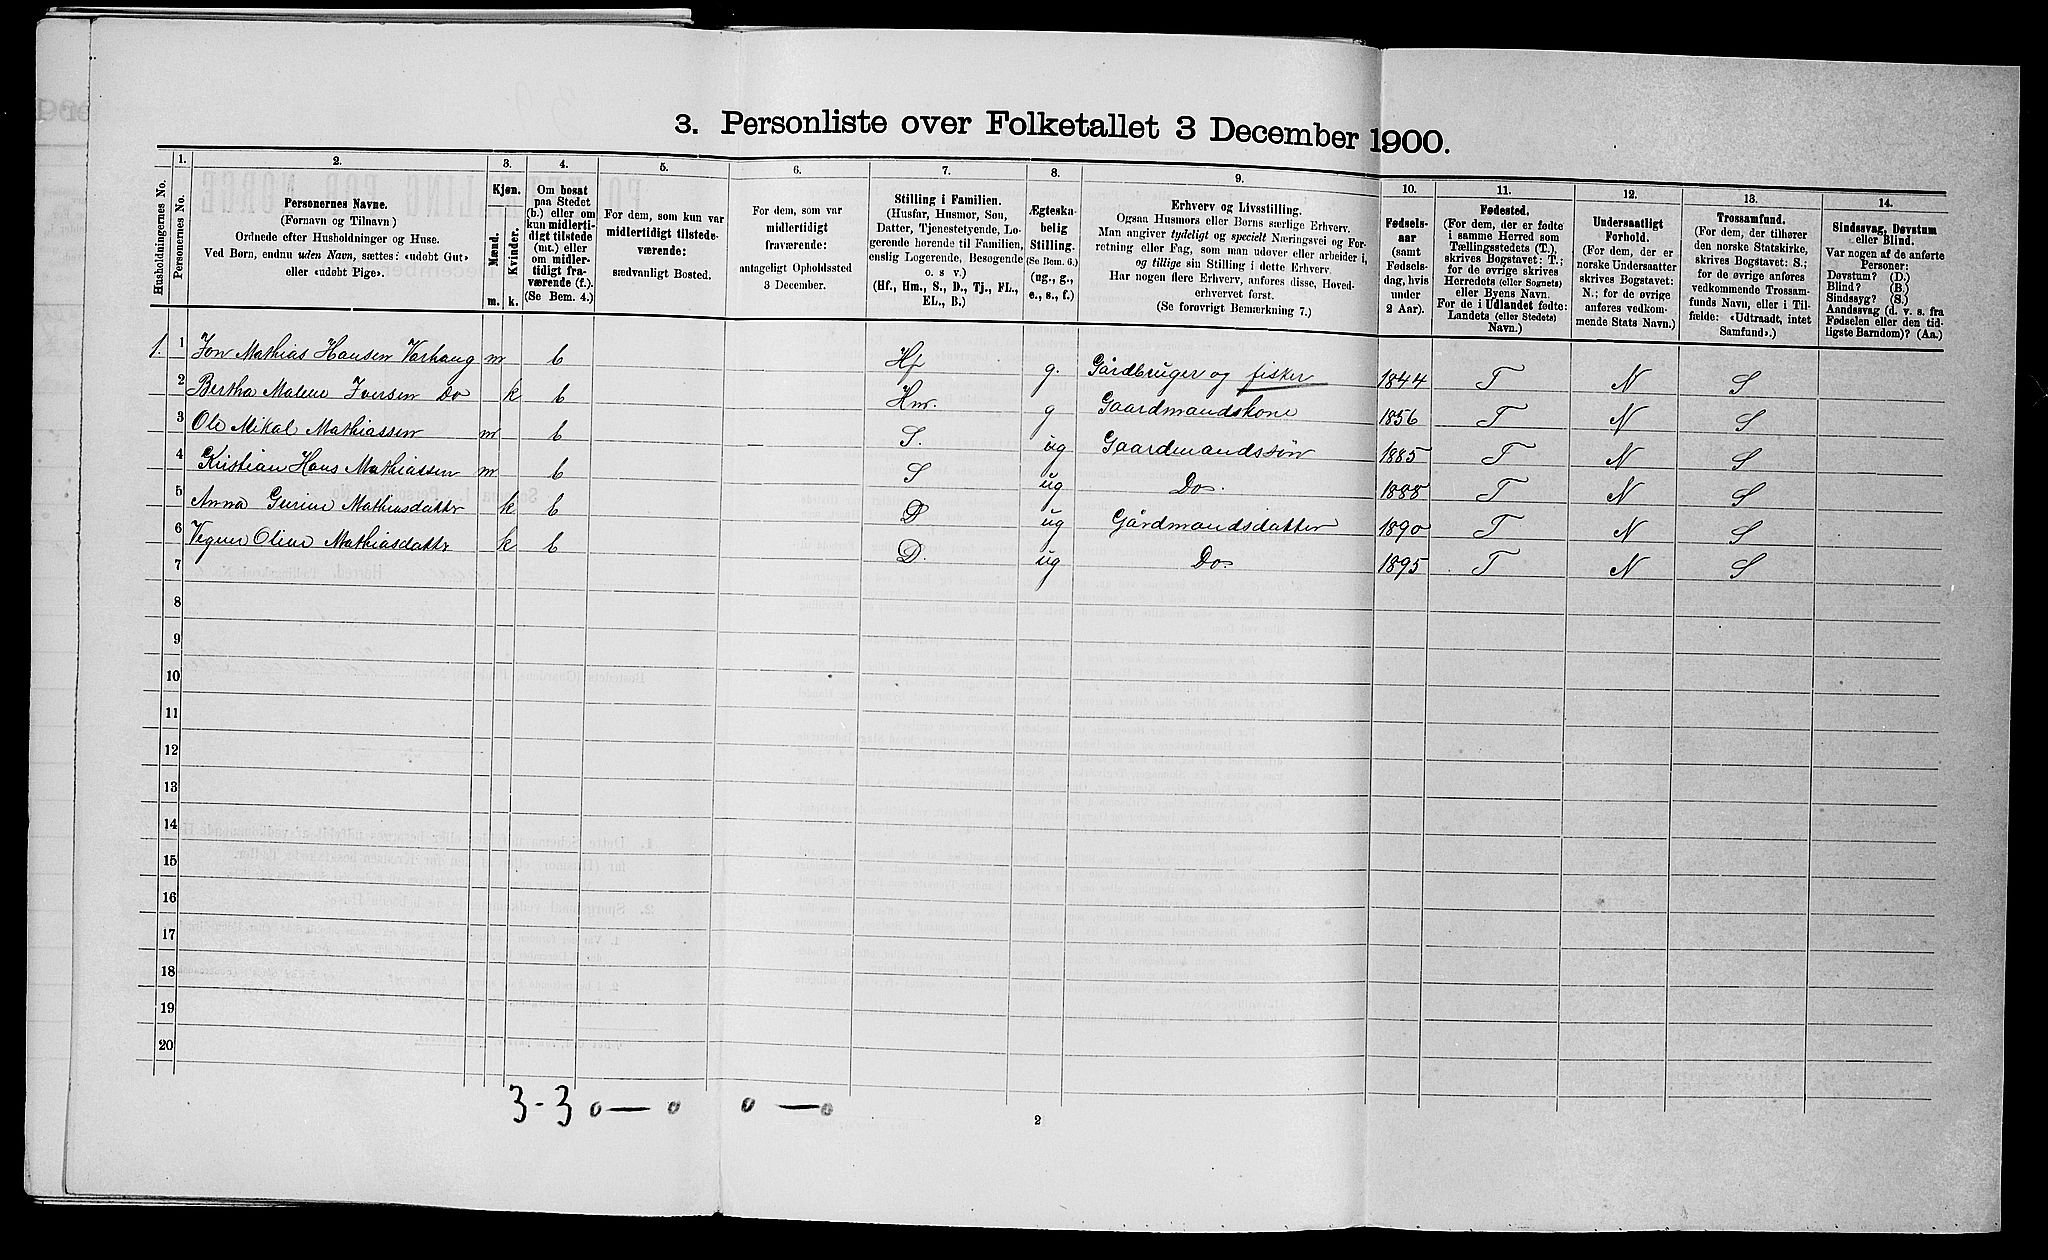 3. Personliste over Folketallet 3 December 1900.
Husholdningernes No.
1. Personernes No.
2. Personernes Navne. (Fornavn og Tilnavn) Ordnede efter Husholdninger og Huse. Ved Børn, endnu uden Navn, sættes: «udøbt Gut» eller «udøbt Pige».
3. Kjøn. Mænd. Kvinder. m. k.
4. Om bosat paa Stedet (b.) eller om kun midlertidigt tilstede (mt.) eller om midlertidigt fraværende (f.). (Se Bem. 4.)
5. For dem, som kun var midlertidigt tilstedeværende: sædvanligt Bosted.
6. For dem, som var midlertidigt fraværende: antageligt Opholdssted 3 December.
7. Stilling i Familien. (Husfar, Husmor, Søn, Datter, Tjenestetyende, Logerende hørende til Familien, enslig Logerende, Besøgende o. s v.) (Hf., Hm., S., D., Tj., FL., EL., B.)
8. Ægteskabelig Stilling. (Se Bem. 6.) (ug., g., e., s., f.)
9. Erhverv og Livsstilling. Ogsaa Husmors eller Børns særlige Erhverv. Man angiver tydeligt og specielt Næringsvei og Forretning eller Fag, som man udøver eller arbeider i, og tillige sin Stilling i dette Erhverv. Har nogen flere Erhverv, anføres disse, Hovederhvervet først. (Se forøvrigt Bemærkning 7.)
10. Fødselsaar (samt Fødselsdag, hvis under 2 Aar).
11. Fødested. (For dem, der er fødte i samme Herred som Tællingsstedets (T.), skrives Bogstavet: T.; for de øvrige skrives Herredets (eller Sognets) eller Byens Navn. For de i Udlandet fødte: Landets (eller Stedets) Navn.)
12. Undersaatligt Forhold. (For dem, der er norske Undersaatter skrives Bogstavet: N.; for de øvrige anføres vedkommende Stats Navn.)
13. Trossamfund. (For dem, der tilhører den norske Statskirke, skrives Bogstavet: S.; for de øvrige anføres vedkommende Trossamfunds Navn, eller i Tilfælde: «Udtraadt, intet Samfund».)
14. Sindssvag, Døvstum eller Blind. Var nogen af de anførte Personer: Døvstum? (D.) Blind? (B.) Sindssyg? (S.) Aandssvag (d. v. s. fra Fødselen eller den tidligste Barndom)? (Aa.)
1. 1 Jon Mathias Hansen Varhaug m b Hf g. Gårdbruger og fisker 1844 T N S
2 Bertha Malene Iversen Do k b Hm. g Gaardmandskone 1856 T N S
3 Ole Mikal Mathiassen m b S. ug Gaardmandssøn 1885 T N S
4 Kristian Hans Mathiassen m b S ug Do. 1888 T N S
5 Anna Gurine Mathiasdatter k b D ug Gårdmandsdatter 1890 T N S
6 Oline Mathiasdattr k b D. ug Do. 1895 T N S
7
8
9
10
11
12
13
14
15
16
17
18
19
20
3-3 0—0 0—0
2